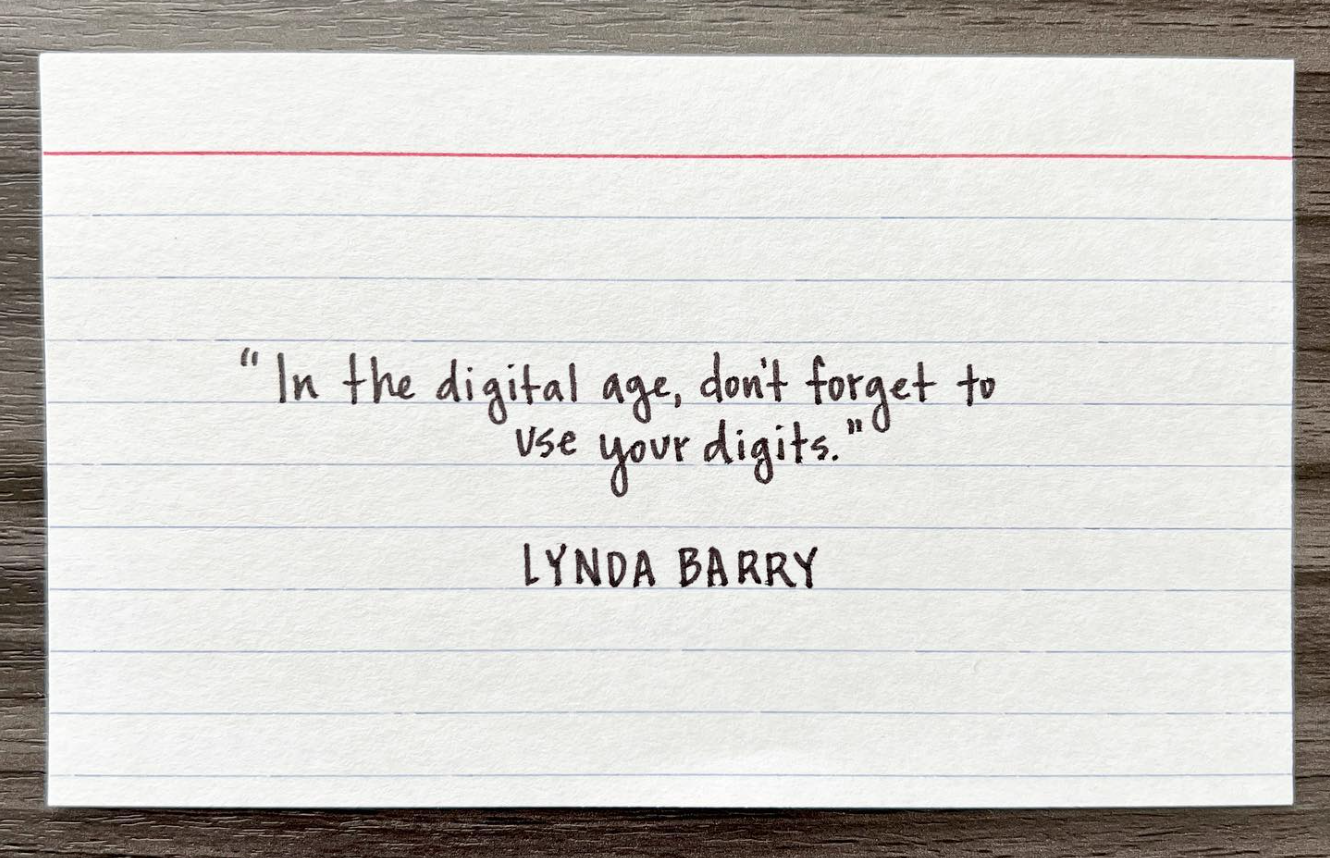 “In the digital age, don't forget to
use your digits.”
LYNDA BARRY